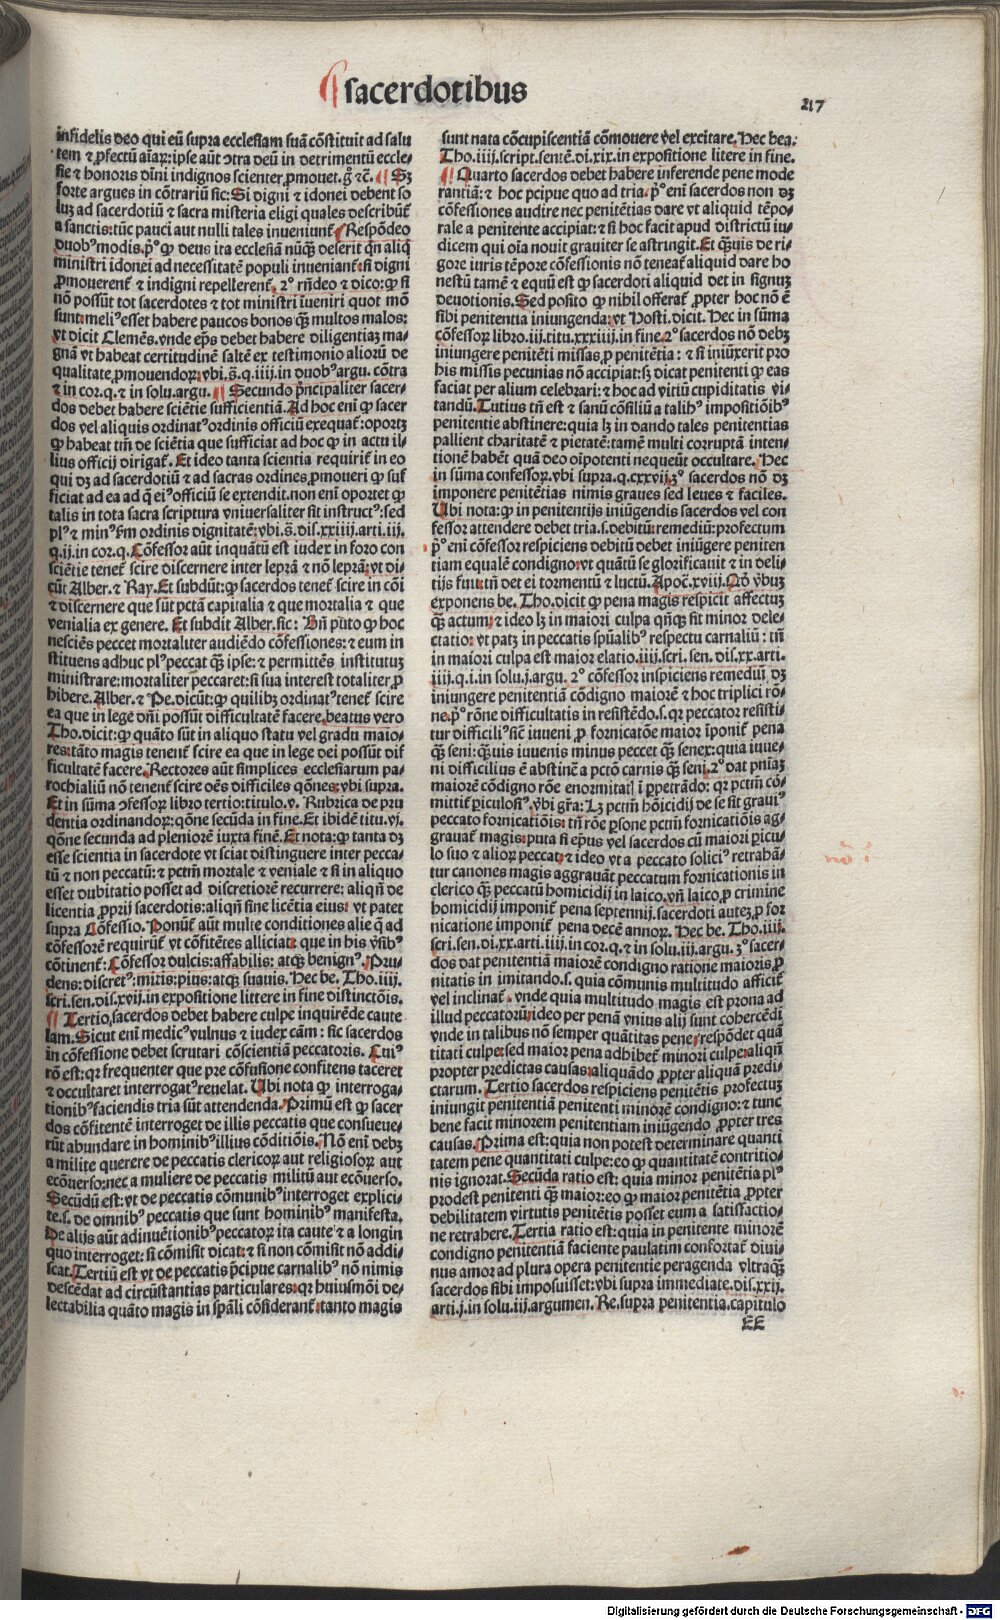 ¶ sacerdotibus
217
infidelis deo qui eū supra ecclesiam suā cōstituit ad salu
tem ⁊ ꝓfectū aīaꝝ: ipse aūt ↄtra deū in detrimentū eccle-
sie ⁊ honoris dn̄i indignos scienter ꝓmouet. gͦ ⁊c̄. ¶ Sꝫ
forte argues in cōtrariū sic: Si digni ⁊ idonei debent so
lūꝫ ad sacerdotiū ⁊ sacra misteria eligi quales describūt̄
a sanctis: tūc pauci aut nulli tales inueniunt̄. ¶ Respōdeo
duobꝰ modis. pͦ. ꝙ deus ita ecclesiā nūꝗ̄ deserit qn̄ aliꝗ
ministri idonei ad necessitatē populi inueniant̄: si digni
ꝓmouerent̄ ⁊ indigni repellerent̄. 2ͦ rn̄deo ⁊ dico: ꝙ si
nō possūt tot sacerdotes ⁊ tot ministri īueniri quot mō
sunt: meliꝰ esset habere paucos bonos ꝗ̄ multos malos:
vt dicit Clemēs. vnde ep̄s debet habere diligentiaꝫ ma-
gnā vt habeat certitudinē saltē ex testimonio alioꝝ de
qualitate ꝓmouendoꝝ: vbi. s̄. q. iiij. in duobꝰ argu. cōtra
⁊ in cor. q. ⁊ in solu. argu. ¶ Secundo pn̄cipaliter sacer-
dos debet habere sciētie sufficientiā. Ad hoc eni ꝙ sacer
dos vel aliquis ordinatꝰ ordinis officiū exequat̄: oportꝫ
ꝙ habeat tm̄ de sciētia que sufficiat ad hoc ꝙ in actu il-
lius officij dirigat̄. Et ideo tanta scientia requirit̄ in eo
qui dꝫ ad sacerdotiū ⁊ ad sacras ordines ꝓmoueri ꝙ suf
ficiat ad ea ad q̄ eiꝰ officiū se extendit. non eni oportet ꝙ
talis in tota sacra scriptura vniuersaliter sit instructꝰ: sed
plꝰ ⁊ minꝰ ẜm ordinis dignitatē: vbi. s̄. dis. xxiiij. arti. iij.
q. ij. in cor. q. Cōfessor aūt inquātū est iudex in foro con
sciētie tenet̄ scire discernere inter leprā ⁊ nō leprā: vt di-
cūt Alber. ⁊ Ray. Et subdūt: ꝙ sacerdos tenet̄ scire in cōi
⁊ discernere que sūt pctā capitalia ⁊ que mortalia ⁊ que
venialia ex genere. Et subdit Alber. sic: Bn̄ puto ꝙ hoc
nesciēs peccet mortaliter audiēdo cōfessiones: ⁊ eum in
stituens adhuc plꝰ peccat ꝗ̄ ipse: ⁊ permittēs institutuꝫ
ministrare: mortaliter peccaret: si sua interest totaliter ꝓ
hibere. Alber. ⁊ Pe. dicūt: ꝙ quilibꝫ ordinatꝰ tenet̄ scire
ea que in lege dn̄i possūt difficultatē facere. beatus vero
Tho. dicit: ꝙ quāto sūt in aliquo statu vel gradu maio-
res: tāto magis tenent̄ scire ea que in lege dei possūt dif
ficultatē facere. Rectores aūt simplices ecclesiarum pa-
rochialiū nō tenent̄ scire oēs difficiles qōnes: vbi supra.
Et in sūma ↄfessoꝝ libro tertio: titulo. v. Rubrica de pru
dentia ordinandoꝝ: qōne secūda in fine. Et ibidē titu. vj.
qōne secunda ad pleniorē iuxta finē. Et nota: ꝙ tanta dꝫ
esse scientia in sacerdote vt sciat distinguere inter pecca-
tū ⁊ non peccatū: ⁊ pctm̄ mortale ⁊ veniale ⁊ si in aliquo
esset dubitatio posset ad discretiorē recurrere: aliqn̄ de
licentia ꝓprij sacerdotis: aliqn̄ sine licētia eius: vt patet
supra Cōfessio. Ponūt̄ aūt multe conditiones alie q̄ ad
cōfessorē requirūt̄ vt cōfitētes alliciat: que in his v̄sibꝰ
cōtinent̄: Cōfessor dulcis: affabilis: atqꝫ benignꝰ. Pru-
dens: discretꝰ: mitis: pius: atqꝫ suauis. Hec be. Tho. iiij.
scri. sen. dis. xvij. in expositione littere in fine distinctōis.
¶ Tertio sacerdos debet habere culpe inquirēde caute
lam. Sicut eni medicꝰ vulnus ⁊ iudex cām: sic sacerdos
in cōfessione debet scrutari cōscientiā peccatoris. Cuiꝰ
rō est: qꝛ frequenter que pre cōfusione confitens taceret
⁊ occultaret interrogatꝰ reuelat. Ubi nota ꝙ interroga-
tionibꝰ faciendis tria sūt attendenda. Primū est ꝙ sacer
dos cōfitentē interroget de illis peccatis que consueue-
rūt abundare in hominibꝰ illius cōditiōis. Nō eni debꝫ
a milite querere de peccatis clericoꝝ aut religiosoꝝ aut
ecōuerso: nec a muliere de peccatis militū aut ecōuerso.
Secūdū est: vt de peccatis cōmunibꝰ interroget explici-
te. s. de omnibꝰ peccatis que sunt hominibꝰ manifesta.
De alijs aūt adinuētionibꝰ peccatoꝝ ita caute ⁊ a longin
quo interroget: si cōmisit dicat: ⁊ si non cōmisit nō addi-
scat. Tertiū est vt de peccatis pn̄cipue carnalibꝰ nō nimis
descēdat ad circūstantias particulares: qꝛ huiusmōi de-
lectabilia quāto magis in spāli cōsiderant̄: tanto magis
sunt nata cōcupiscentiā cōmouere vel excitare. Hec bea.
Tho. iiij. script. sentē. di. xix. in expositione litere in fine.
¶ Quarto sacerdos debet habere inferende pene mode
rantiā: ⁊ hoc pcipue quo ad tria. pͦ. eni sacerdos non dꝫ
cōfessiones audire nec penitētias dare vt aliquid tēpo-
rale a penitente accipiat: ⁊ si hoc facit apud districtū iu-
dicem qui oīa nouit grauiter se astringit. Et ꝗ̄uis de ri-
gore iuris tēpore cōfessionis nō teneat̄ aliquid dare ho
nestū tamē ⁊ equū est ꝙ sacerdoti aliquid det in signuꝫ
deuotionis. Sed posito ꝙ nihil offerat̄ ꝓpter hoc nō ē
sibi penitentia iniungenda: vt Hosti. dicit. Hec in sūma
cōfessoꝝ libro. iij. titu. xxxiiij. in fine. 2ͦ sacerdos nō debꝫ
iniungere penitēti missas ꝓ penitētia: ⁊ si iniūxerit pro
his missis pecunias nō accipiat: sꝫ dicat penitenti ꝙ eas
faciat per alium celebrari: ⁊ hoc ad vitiū cupiditatis vi-
tandū. Tutius tn̄ est ⁊ sanū cōsiliū a talibꝰ impositiōibꝰ
penitentie abstinere: quia lꝫ in dando tales penitentias
pallient charitatē ⁊ pietatē: tamē multi corruptā inten-
tionē habēt quā deo oīpotenti nequeūt occultare. Hec
in sūma confessoꝝ. vbi supra. q. cxxvij. 3ͦ sacerdos nō dꝫ
imponere penitētias nimis graues sed leues ⁊ faciles.
Ubi nota: ꝙ in penitentijs iniūgendis sacerdos vel con
fessor attendere debet tria. s. debitū: remediū: profectum
pͦ eni cōfessor respiciens debitū debet iniūgere peniten
tiam equalē condigno: vt quātū se glorificauit ⁊ in deli-
tijs fuit: tm̄ det ei tormentū ⁊ luctū. Apoc̄. xviij. Qd̄ ꝟbuꝫ
exponens be. Tho. dicit ꝙ pena magis respicit affectuꝫ
ꝗ̄ actum: ⁊ ideo lꝫ in maiori culpa qn̄qꝫ sit minor dele-
ctatio: vt patꝫ in peccatis spūalibꝰ respectu carnaliū: tn̄
in maiori culpa est maior elatio. iiij. scri. sen. dis. xx. arti.
iiij. q. i. in solu. j. argu. 2ͦ cōfessor inspiciens remediū dꝫ
iniungere penitentiā cōdigno maiorē ⁊ hoc triplici rō-
ne. pͦ. rōne difficultatis in resistēdo. s. qꝛ peccator resisti-
tur difficiliꝰ sic̄ iuueni ꝓ fornicatōe maior īponit̄ pena
ꝗ̄ seni: ꝗ̄uis iuuenis minus peccet ꝗ̄ senex: quia iuue-
ni difficilius ē abstinē a pctō carnis ꝗ̄ seni. 2ͦ dat pniaꝫ
maiorē cōdigno rōe enormitatꝭ ī ꝑpetrādo: qꝛ pctm̄ cō-
mittit̄ ꝑiculosiꝰ. ꝟbi gr̄a: Lꝫ pctm̄ hoīcidij de se sit grauiꝰ
peccato fornicatiōis: tn̄ rōe ꝑsone pctm̄ fornicatiōis ag-
grauat̄ magis: puta si ep̄us vel sacerdos cū maiori ꝑicu-
lo suo ⁊ alioꝝ peccat: ⁊ ideo vt a peccato soliciꝰ retrahā-
tur canones magis aggrauāt peccatum fornicationis in
clerico ꝗ̄ peccatū homicidij in laico. vn̄ laico ꝓ crimine
homicidij imponit̄ pena septennij. sacerdoti auteꝫ ꝓ for
nicatione imponit̄ pena decē annoꝝ. Hec be. Tho. iiij.
scri. sen. di. xx. arti. iiij. in cor. q. ⁊ in solu. iij. argu. 3ͦ sacer-
dos dat penitentiā maiorē condigno ratione maioris ꝓ
nitatis in imitando. s. quia cōmunis multitudo afficit̄
vel inclinat̄. vnde quia multitudo magis est prona ad
illud peccatoꝝ: ideo per penā vnius alij sunt cohercēdi
vnde in talibus nō semper quātitas pene respōdet quā
titati culpe: sed maior pena adhibet̄ minori culpe aliqn̄
propter predictas causas: aliquādo ꝓpter aliquā predi-
ctarum. Tertio sacerdos respiciens peniētis profectuꝫ
iniungit penitentiā penitenti minorē condigno: ⁊ tunc
bene facit minorem penitentiam iniūgendo ꝓpter tres
causas. Prima est: quia non potest determinare quanti
tatem pene quantitati culpe: eo ꝙ quantitatē contritio-
nis ignorat. Secūda ratio est: quia minor penitētia plꝰ
prodest penitenti ꝗ̄ maior: eo ꝙ maior penitētia ꝓpter
debilitatem virtutis penitētis posset eum a satisfactio-
ne retrahere. Tertia ratio est: quia in penitente minorē
condigno penitentiā faciente paulatim confortat̄ diui-
nus amor ad plura opera penitentie peragenda vltraꝗ̄
sacerdos sibi imposuisset: vbi supra immediate. dis. xxij.
arti. j. in solu. iij. argumen. Re. supra penitentia. capitulo
EE
Digitalisierung gefördert durch die Deutsche Forschungsgemeinschaft - DFG